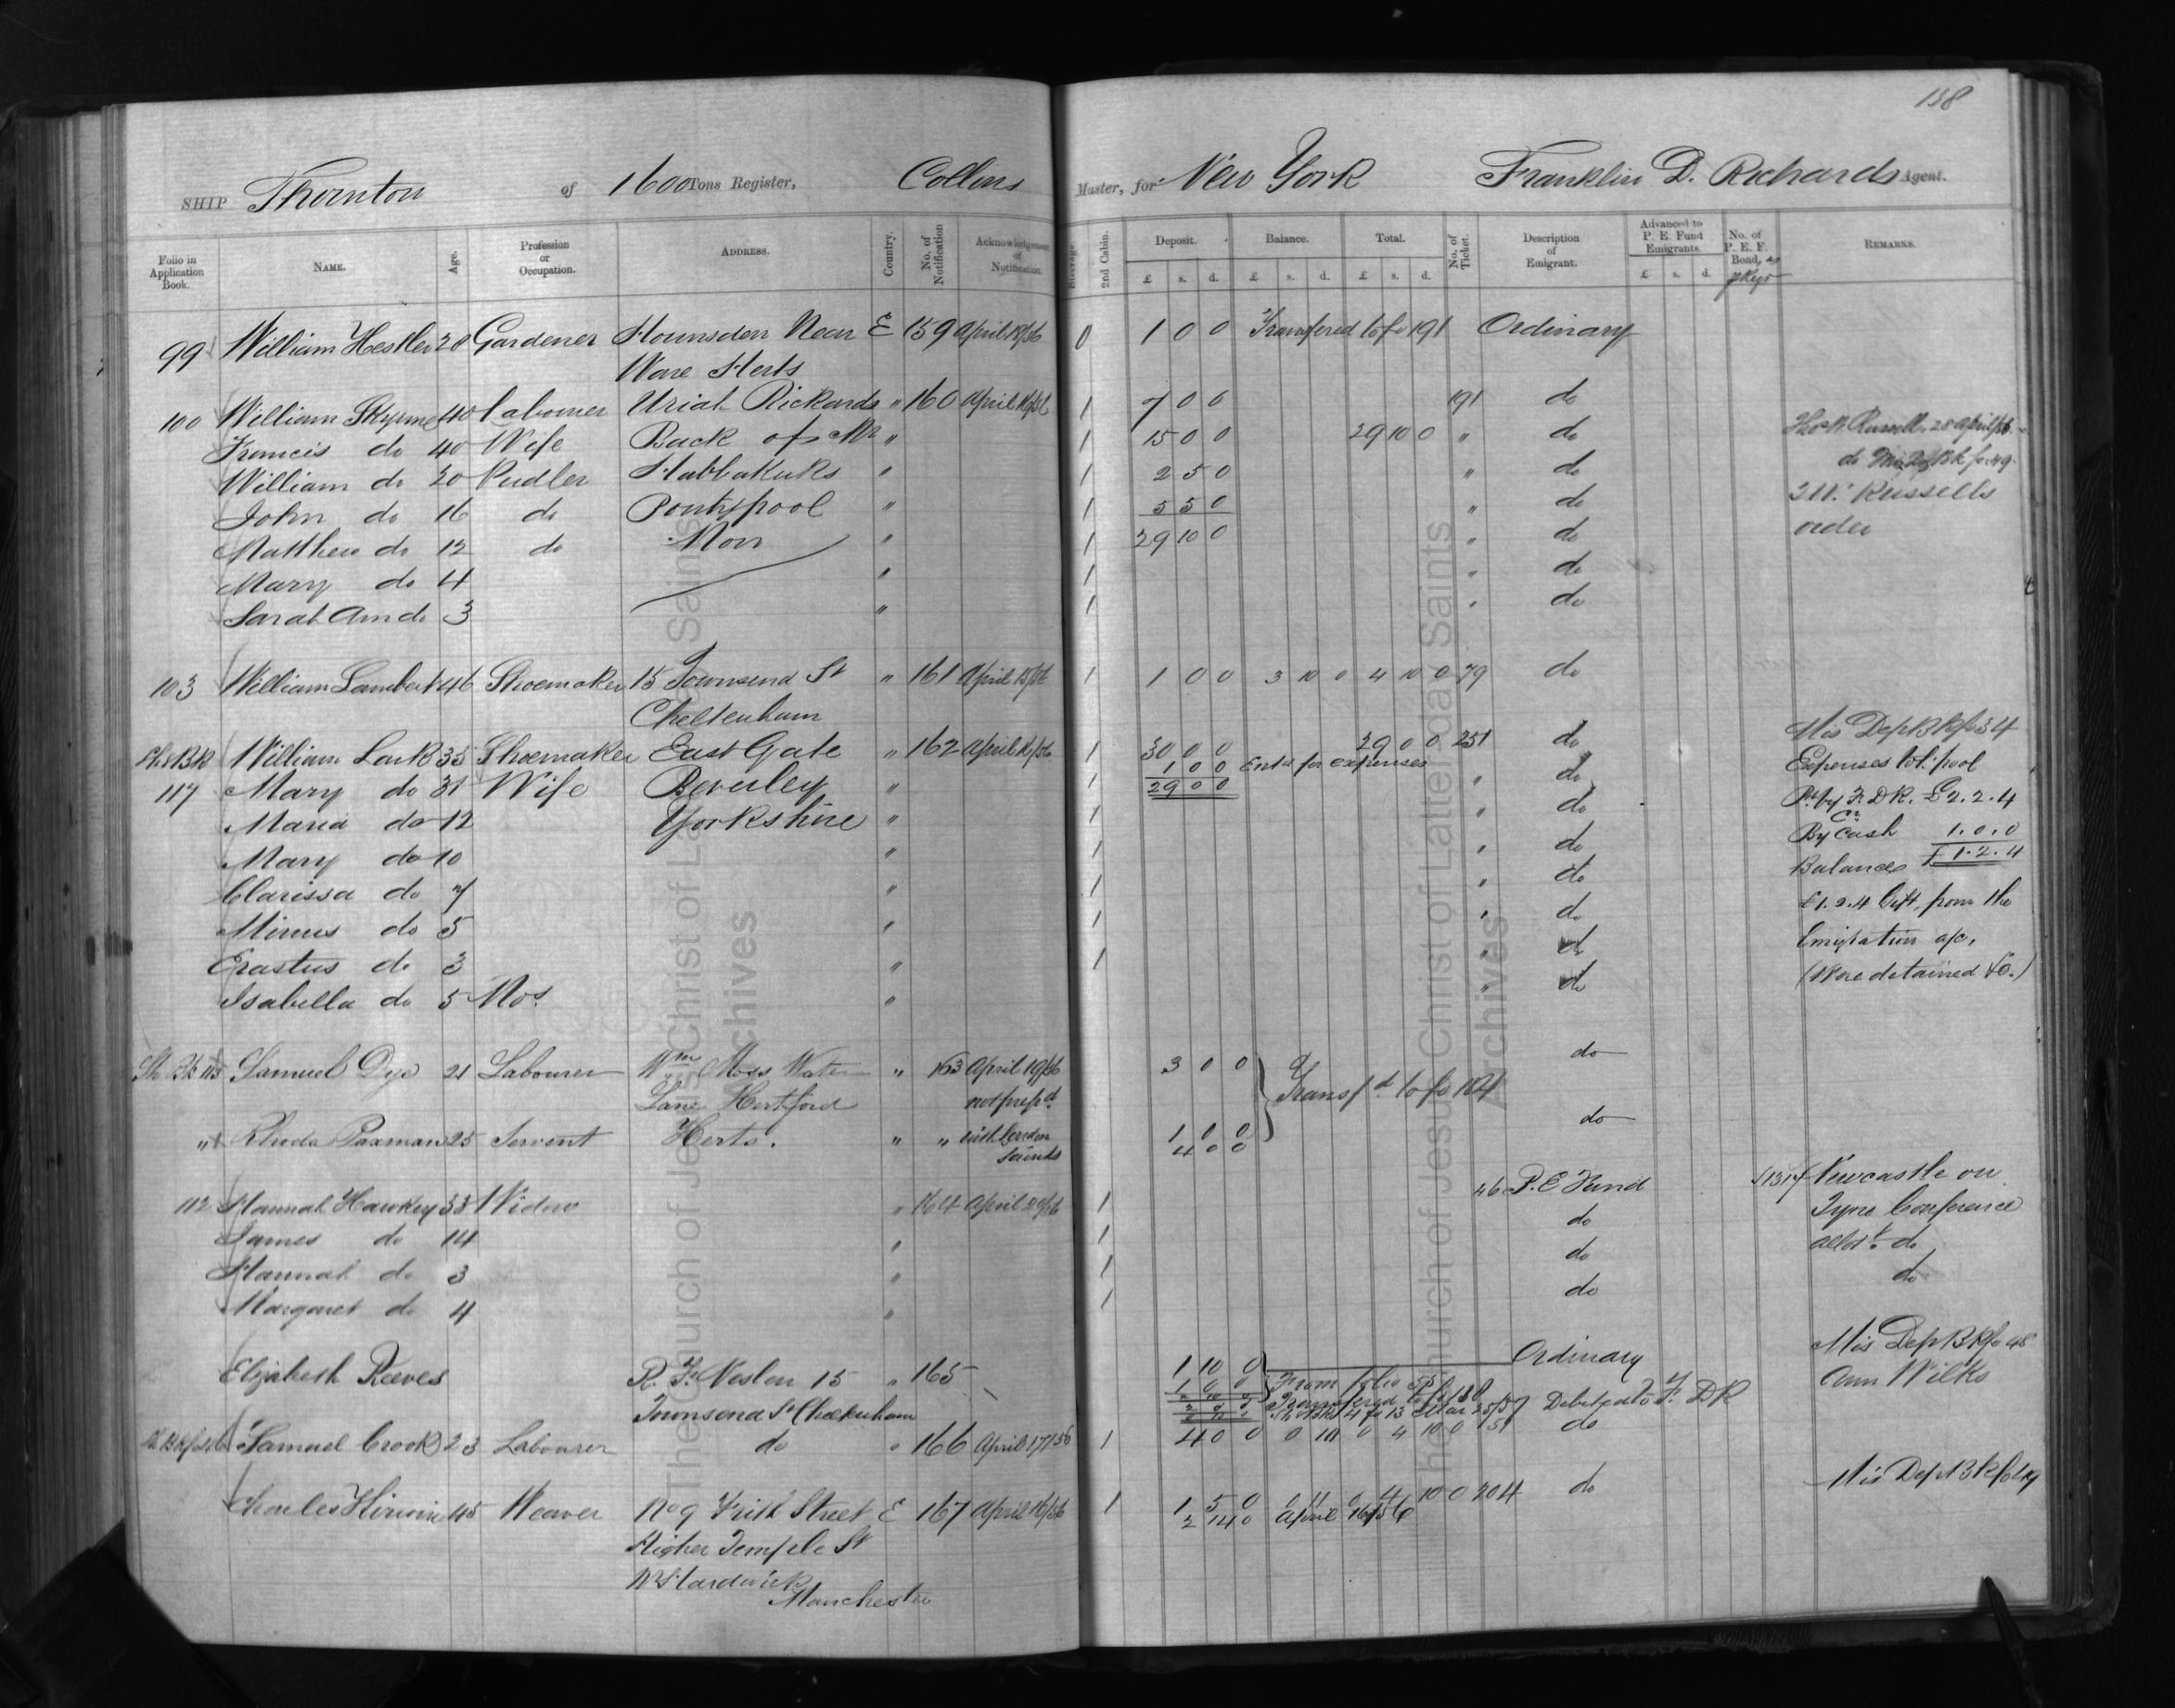 158
SHIP Thornton of 1600 Tons Register, Collins Master, for New York Franklin D. Richards Agent.
Folio in Application Book. NAME. Age. Profession or Occupation. ADDRESS. Country. No. of Notification Acknowledgement of Notification. Steerage. 2nd Cabin. Deposit. Balance. Total. No. of Ticket. Description of Emigrant. Advanced to P. E. Fund Emigrants. No. of P. E. F. Bond, REMARKS.
£ s. d. £ s. d. £ s. d. £ s. d.
99 William Hestler 28 Gardener Hounsden Near E 159 April 18/56 0 1 0 0 Transfered to fo 191 Ordinary
Ware Herts
100 William Skyrme 40 Labourer Uriah Rickards " 160 April 16/56 1 7 0 0 191 do
Francis do 40 Wife Back of Mr " 1 15 0 0 29 10 0 " do Russell 28 April/56
William do 20 Pudler Habbakuks " 1 2 5 0 " do
John do 16 do Pontypool " 1 5 5 0 " do Russells
Matthew do 12 do Mon " 1 29 10 0 " do order
Mary do 4 " 1 " do
Sarah Ann do 3 " 1 " do
103 William Lambert 46 Shoemaker 15 Townsend St " 161 April 15/56 1 1 0 0 3 10 0 4 10 0 79 do
Cheltenham
William Lark 35 Shoemaker East Gate " 162 April 16/56 1 30 0 0 29 0 0 251 do Mis Dep B k fo 34
1 0 0 Entd for expenses Expenses to L.pool
117 Mary do 31 Wife Beverley " 1 29 0 0 " do Pd by F. D R. £2.2.4
Maria do 12 Yorkshire " 1 " do By Cash 1.0.0
Mary do 10 " 1 " do Balance £1.2.4
Clarissa do 7 " 1 " do £1.2.4 Gift, from the
Minus do 5 " 1 " do Emigration a/c,
Erastus do 3 " 1 " do (Were detained &c.)
Isabella do 5 Mos. " " do
Samuel Dye 21 Labourer Wm Moss Water " 163 April 19/56 3 0 0 Transfd to fo 184 do
Lane Hertford not prepd
" Rhoda Paxman 25 Servent Herts. " " with London 1 0 0 do
Saints 4 0 0
112 Hannah Hawkey 33 Widow " 164 April 20/56 1 46 P. E Fund Newcastle on
James do 14 " 1 do Tyne Conference
Hannah do 3 " 1 do do
Margaret do 4 " 1 do do
Elizabeth Reeves R. F. Neslen 15 " 165 1 10 0 Ordinary Mis Dep B k fo 48
Townsend St Cheltenham 1 0 0 From folio 55 Ann Wilks
Samuel Crook 23 Labourer do " 166 April 17/56 1 4 0 0 0 10 0 4 10 0 151 do
Charles Hirione 45 Weaver No 9 Frith Street E 167 April 16/56 1 1 5 0 0 11 0 4 10 0 204 do Mis Dep B k fo 49
2 14 0 April 16/56
Higher Temple St
Hardwick
Manchester
The Church of Jesus Christ of Latter-day Saints
Archives
The Church of Jesus Christ of Latter-day Saints
Archives